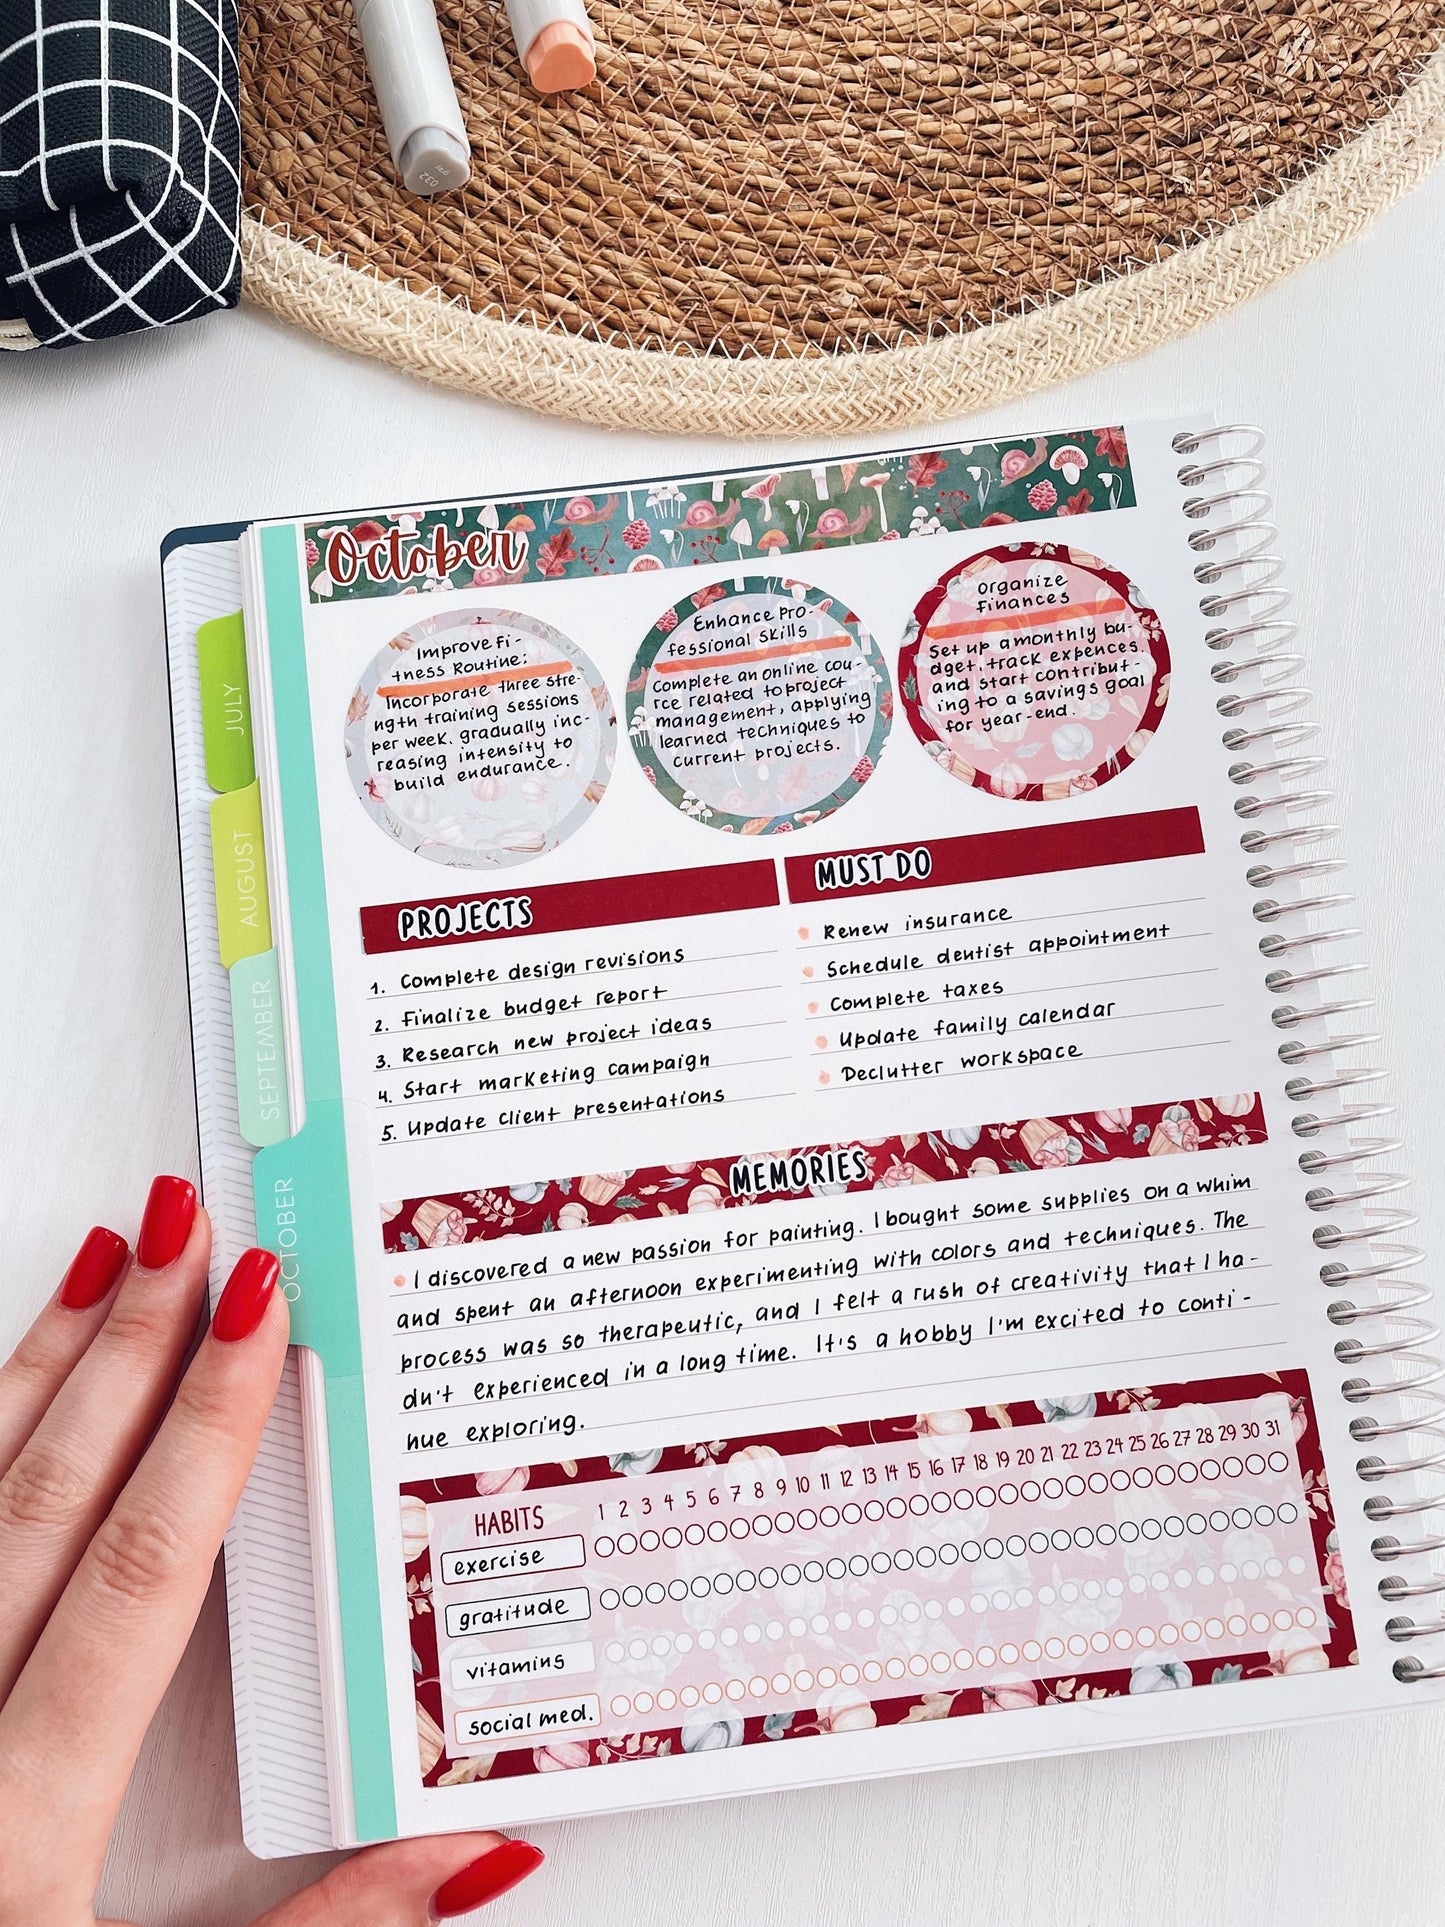 gry
032
October
Improve Fi-
tness Routine:
Incorporate three stre-
ngth training sessions
per week, gradually inc-
reasing intensity to
build endurance.
Enhance Pro-
fessional Skills
Complete an online cou-
rce related to project
management, applying
learned techniques to
current projects.
Organize
Finances
Set up a monthly bu-
dget, track expences.
and start contribut-
ing to a savings goal
for year-end.
JULY
AUGUST
SEPTEMBER
OCTOBER
PROJECTS
1. Complete design revisions
2. Finalize budget report
3. Research new project ideas
4. Start marketing campaign
5. Update client presentations
MUST DO
Renew insurance
Schedule dentist appointment
Complete taxes
Update family calendar
Declutter workspace
MEMORIES
I discovered a new passion for painting. I bought some supplies on a whim
and spent an afternoon experimenting with colors and techniques. The
process was so therapeutic, and I felt a rush of creativity that I ha-
dn't experienced in a long time. It's a hobby I'm excited to conti-
nue exploring.
HABITS 1 2 3 4 5 6 7 8 9 10 11 12 13 14 15 16 17 18 19 20 21 22 23 24 25 26 27 28 29 30 31
exercise
gratitude
vitamins
social med.